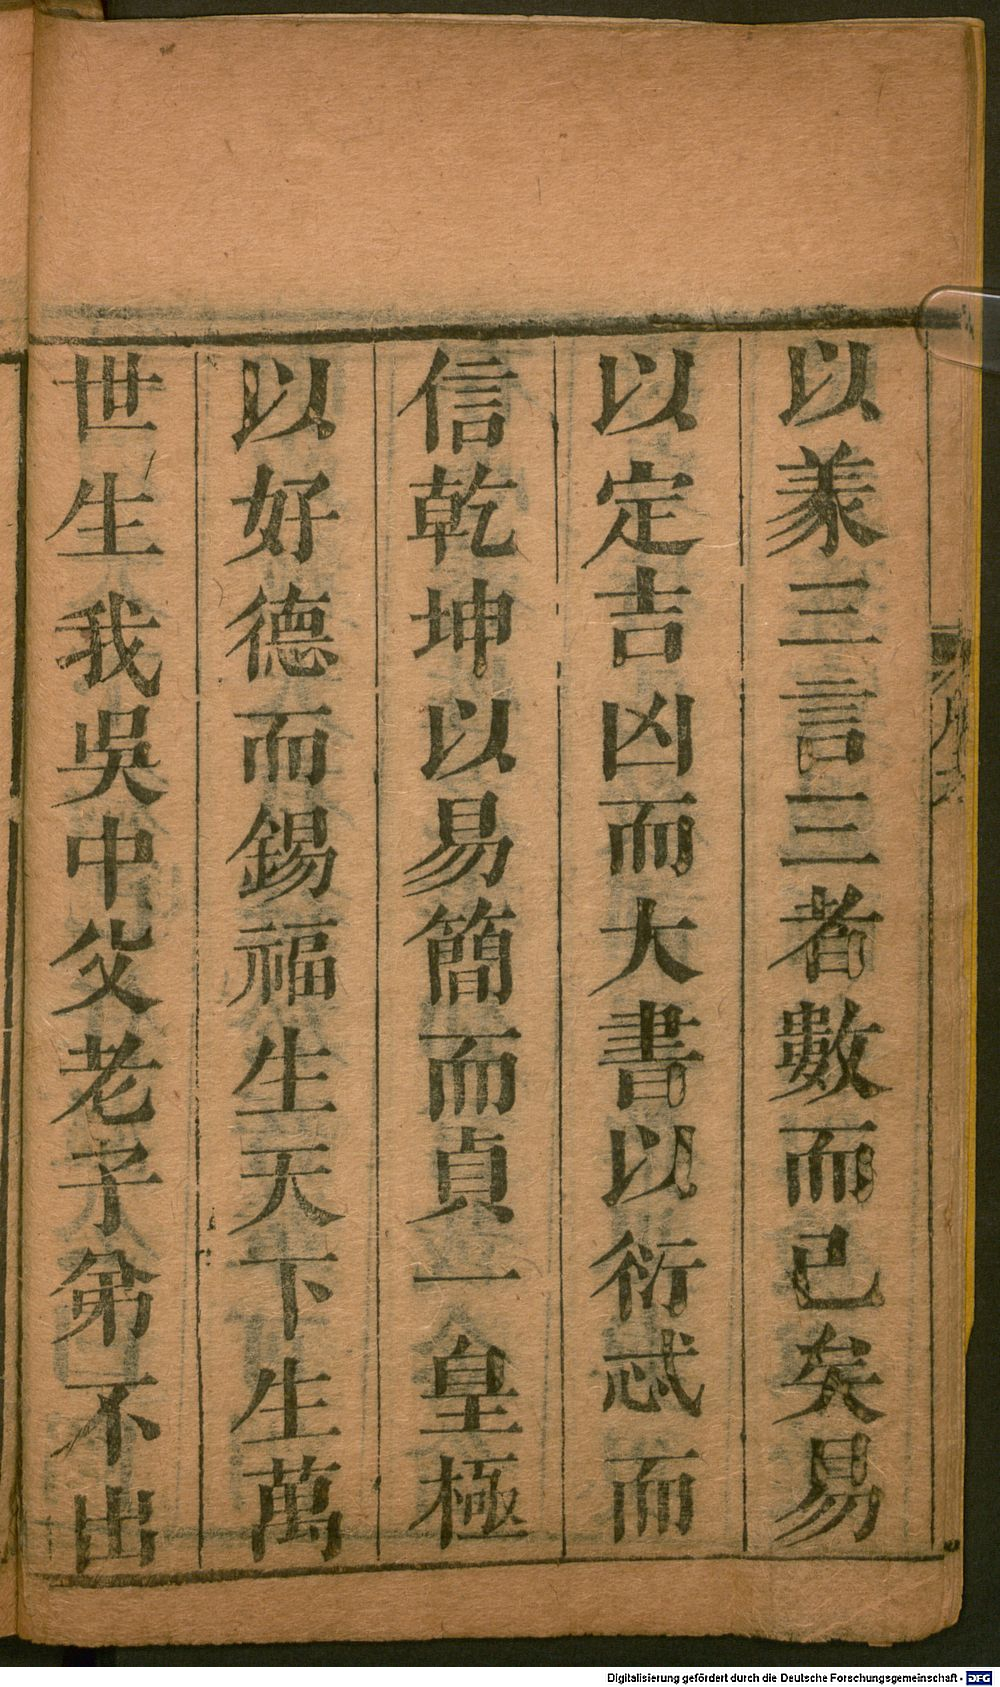 以羕三言三者數而已矣易
以定吉凶而大書以衍忒而
信乾坤以易簡而貞一皇極
以好德而錫福生天下生萬
世生我吳中父老子弟不出
Digitalisierung gefördert durch die Deutsche Forschungsgemeinschaft - DFG